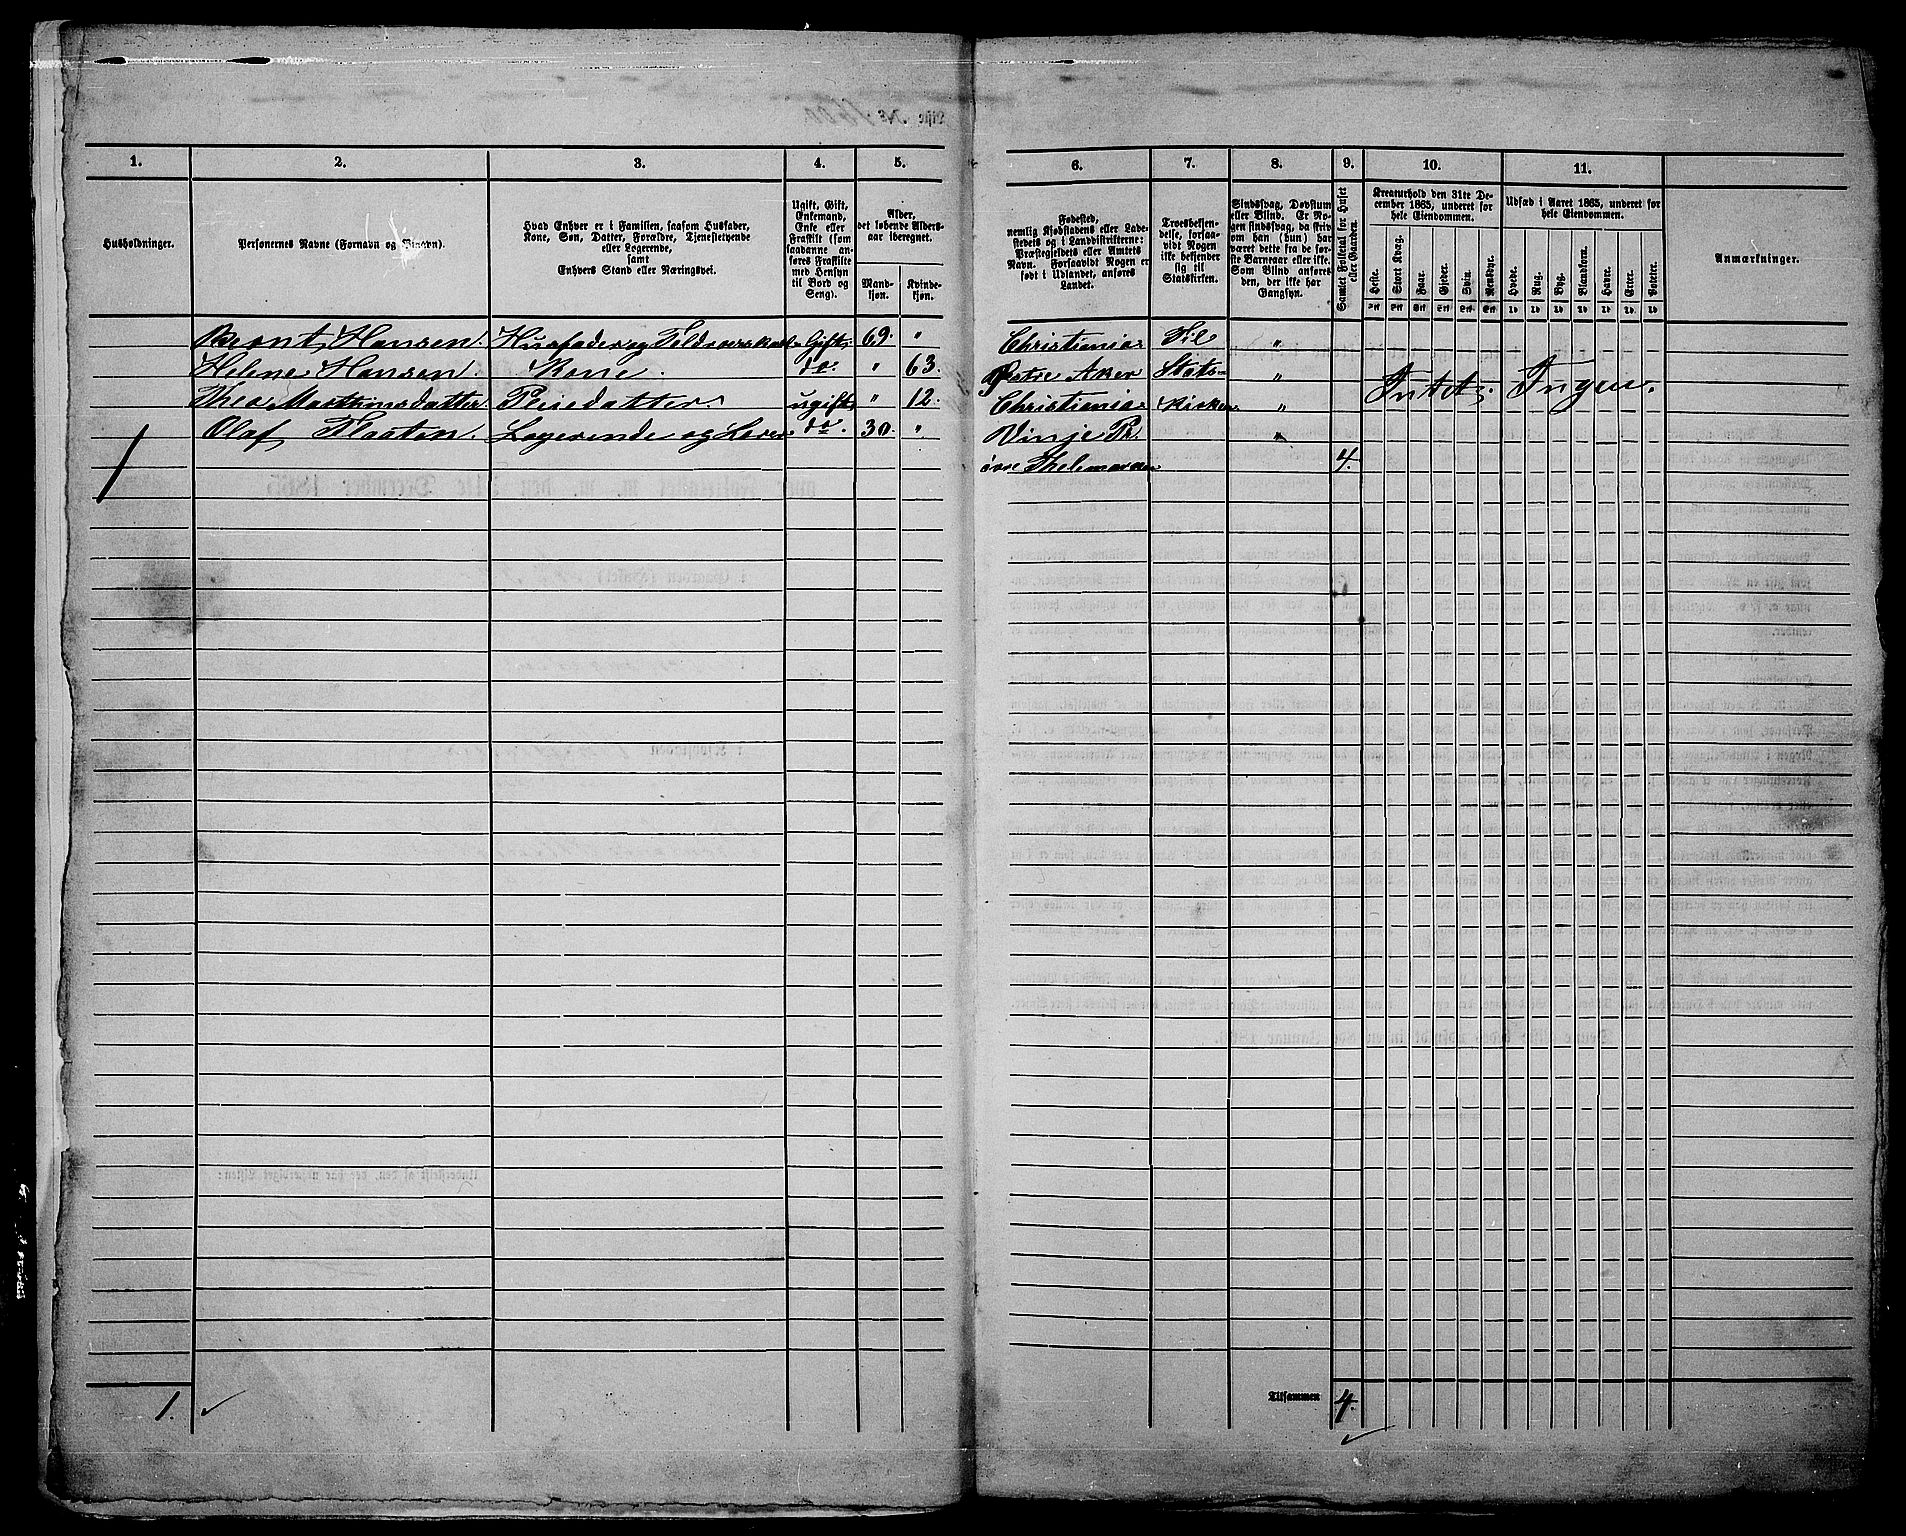 1.
2.
3.
4.
5.
6.
7.
8.
9.
10.
11.
Husholdninger.
Personernes Navne (Fornavn og Tilnavn).
Hvad Enhver er i Familien, saasom Husfader,
Kone, Søn, Datter, Forældre, Tjenestetyende
eller Logerende,
samt
Enhvers Stand eller Næringsvei.
Ugift, Gift,
Enkemand,
Enke eller
Fraskilt (som
saadanne an-
føres Fraskilte
med Hensyn
til Bord og
Seng).
Alder,
det løbende Alders-
aar iberegnet.
Mand-
kjøn.
Kvinde-
kjøn.
Fødested,
nemlig Kjøbstadens eller Lade-
stedets og i Landdistrikterne:
Præstegjeldets eller Amtets
Navn. Forsaavidt Nogen er
født i Udlandet, anføres
Landet.
Troesbekjen-
delse, forsaa-
vidt Nogen
ikke bekjender
sig til
Statskirken.
Sindssvag, Døvstum
eller Blind. Er No-
gen sindssvag, da skriv
om han (hun) har
været dette fra de før-
ste Barneaar eller ikke.
Som Blind anføres
den, der ikke har
Gangsyn.
Samlet Folketal for Huset
eller Gaarden.
Kreaturhold den 31te De-
cember 1865, underet for
hele Eiendommen.
Heste.
Stort Kvæg.
Faar.
Gjeder.
Sviin.
Rensdyr.
Udsæd i Aaret 1865, underet for
hele Eiendommen.
Hvede.
Rug.
Byg.
Blandkorn.
Havre.
Erter.
Poteter.
Anmærkninger.
Bernt Hansen. Husfader og Gift. 69. " Christiania Til "
Helene Hansen Kone. do. " 63. Østre Aker Stats- " Intet. Ingen.
Thea Martinsdatter Pleiedatter. ugift " 12. Christiania kirken. "
Olaf Flaaten. Logerende og Lærer do. 30. " Vinje Pr. "
øvre Thelemarken 4.
1. Tilsammen 4.